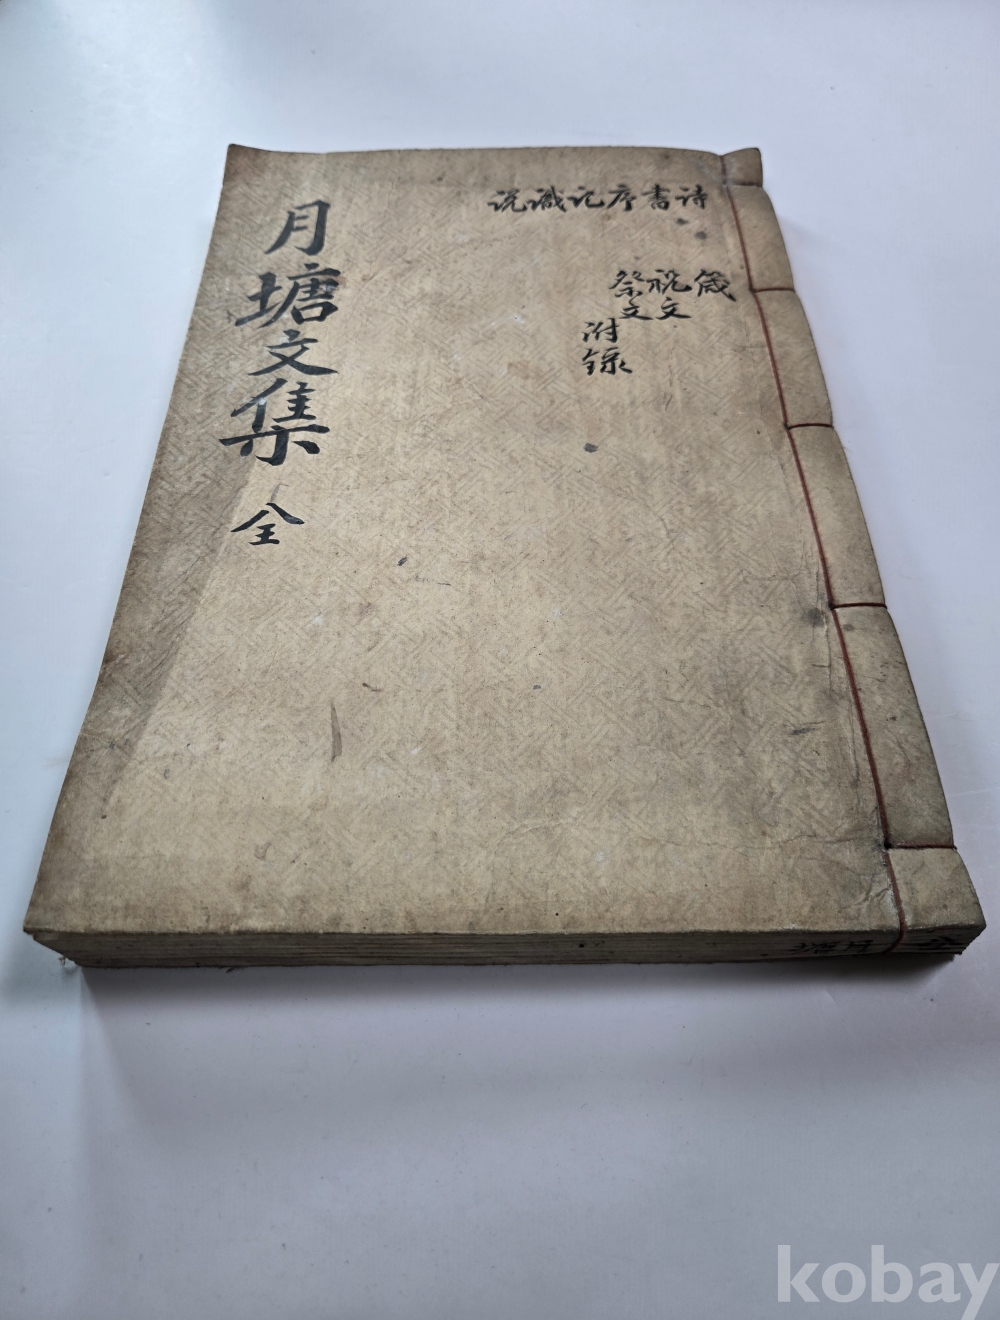 月塘文集 全
詩書序記識說
箴
祝文
祭文
附錄
月塘
全
kobay